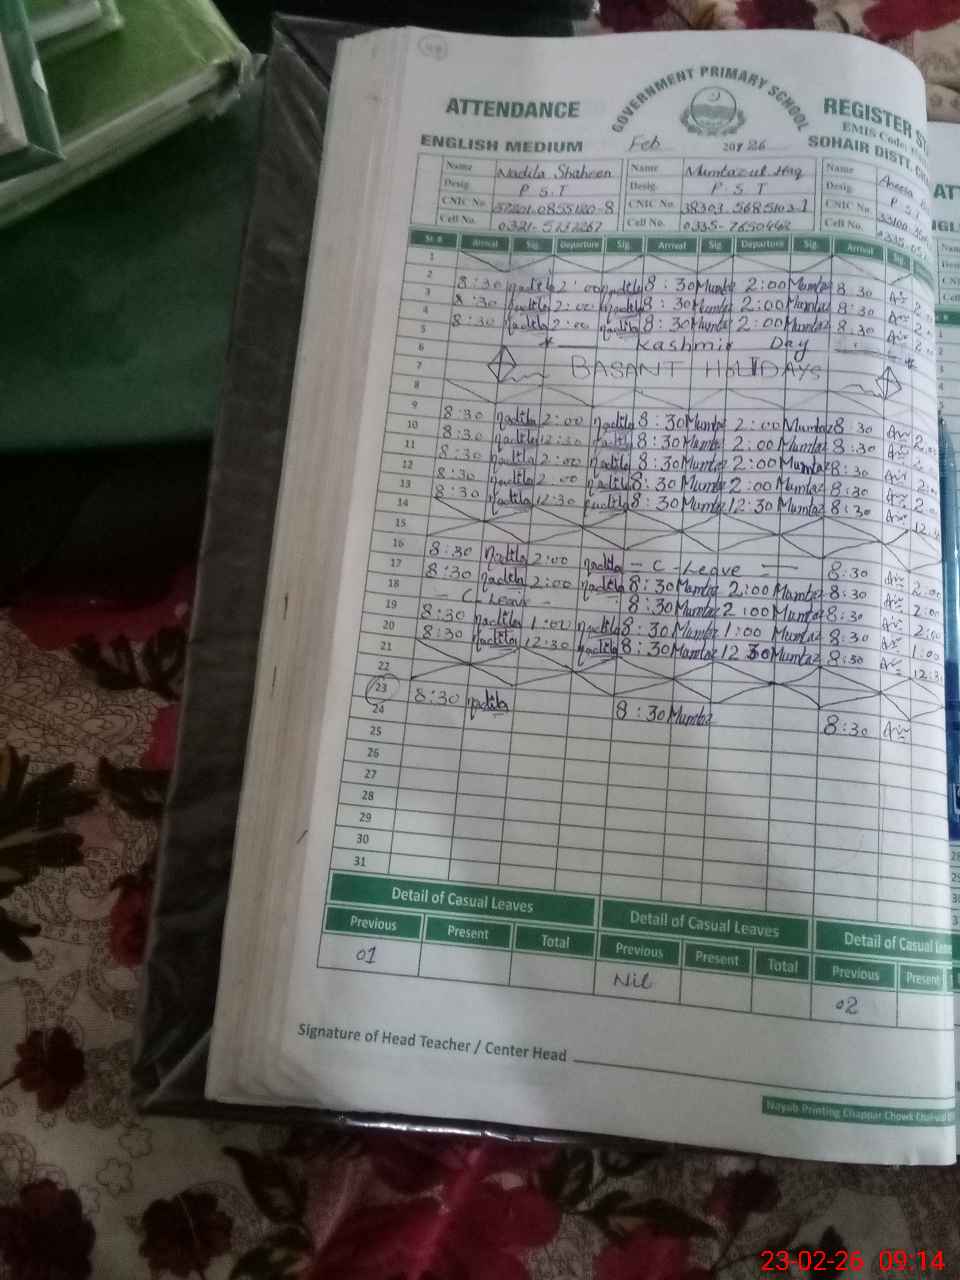 ATTENDANCE GOVERNMENT PRIMARY SCHOOL REGISTER
ENGLISH MEDIUM Feb 2026 SOHAIR DISTT.
EMIS Code:
Name Nadila Shaheen Name Mumtaz ul Haq Name
Desig. P.S.T Desig. P.S.T Desig. P.S.T
CNIC No. CNIC No. CNIC No.
Cell No. Cell No. Cell No.
Sr. # Arrival Sig. Departure Sig. Arrival Sig. Departure Sig. Arrival Sig.
1
2 8:30 Nadila 2:00 Nadila 8:30 Mumtaz 2:00 Mumtaz 8:30
3 8:30 Nadila 2:00 Nadila 8:30 Mumtaz 2:00 Mumtaz 8:30
4 8:30 Nadila 2:00 Nadila 8:30 Mumtaz 2:00 Mumtaz 8:30
5 Kashmir Day
6
7 BASANT HOLIDAYS
8
9 8:30 Nadila 2:00 Nadila 8:30 Mumtaz 2:00 Mumtaz 8:30
10 8:30 Nadila 12:30 Nadila 8:30 Mumtaz 2:00 Mumtaz 8:30
11 8:30 Nadila 2:00 Nadila 8:30 Mumtaz 2:00 Mumtaz 8:30
12 8:30 Nadila 2:00 Nadila 8:30 Mumtaz 2:00 Mumtaz 8:30
13 8:30 Nadila 12:30 Nadila 8:30 Mumtaz 12:30 Mumtaz 8:30
14
15
16 8:30 Nadila 2:00 Nadila - C - Leave - 8:30 2:00
17 8:30 Nadila 2:00 Nadila 8:30 Mumtaz 2:00 Mumtaz 8:30 2:00
18 - C - Leave - 8:30 Mumtaz 2:00 Mumtaz 8:30 2:00
19 8:30 Nadila 1:00 Nadila 8:30 Mumtaz 1:00 Mumtaz 8:30 1:00
20 8:30 Nadila 12:30 Nadila 8:30 Mumtaz 12:30 Mumtaz 8:30 12:30
21
22
23 8:30 Nadila 8:30 Mumtaz 8:30
24
25
26
27
28
29
30
31
Detail of Casual Leaves Detail of Casual Leaves Detail of Casual
Previous Present Total Previous Present Total Previous Present
01 Nil 02
Signature of Head Teacher / Center Head
Nayab Printing Chappar Chowk
23-02-26 09:14